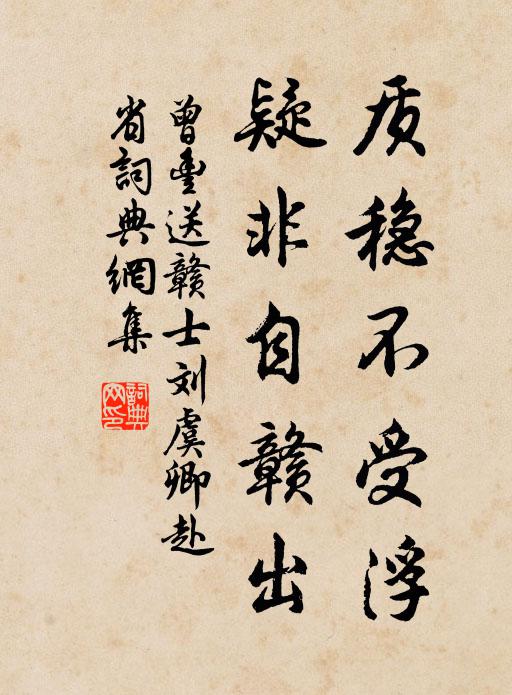 质稳不受浮
疑非自赣出
曾豊送赣士刘虞卿赴
省詞典網集
詞典
网印